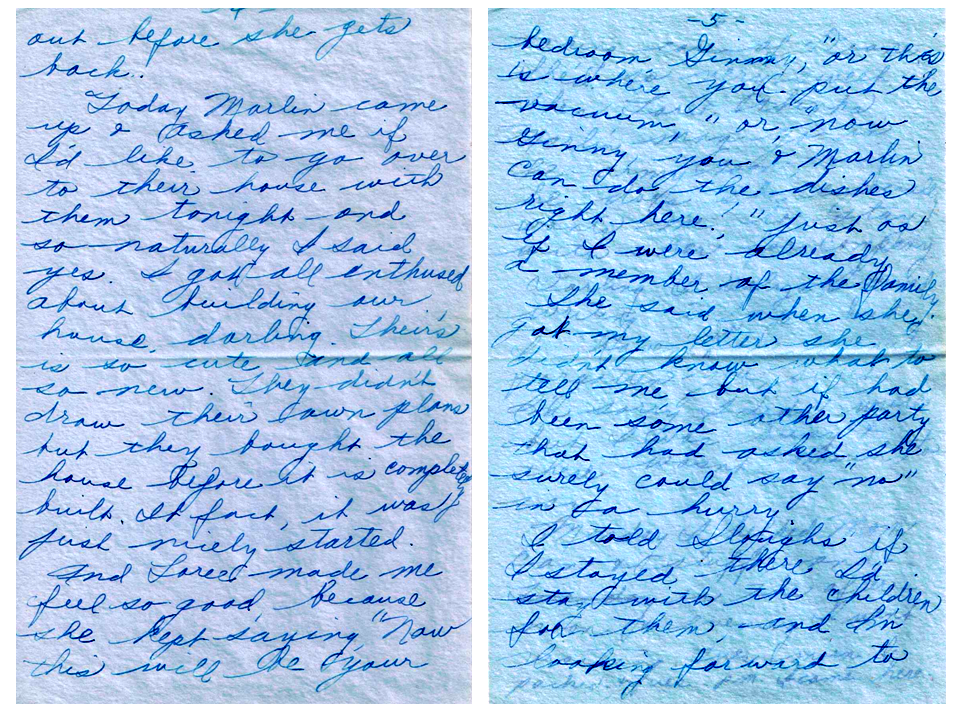 -4-
out before she gets
back.
Today Marlin came
up & asked me if
I'd like to go over
to their house with
them tonight and
so naturally I said
yes. I got all enthused
about building our
house, darling. Their's
is so cute and all
so new. They didn't
draw their own plans
but they bought the
house before it is completely
built. It fact, it was
just nicely started.
And Loree made me
feel so good because
she kept saying "Now
this will be your
-5-
bedroom Ginny," or this
is where you put the
vacuum," or, "now
Ginny, you & Marlin
can do the dishes
right here!" just as
if I were already
a member of the family.
She said when she
got my letter she
didn't know what to
tell me but if had
been some other party
that had asked she
surely could say "no"
in a hurry
I told Sloughs if
I stayed there I'd
stay with the children
for them, and I'm
looking forward to